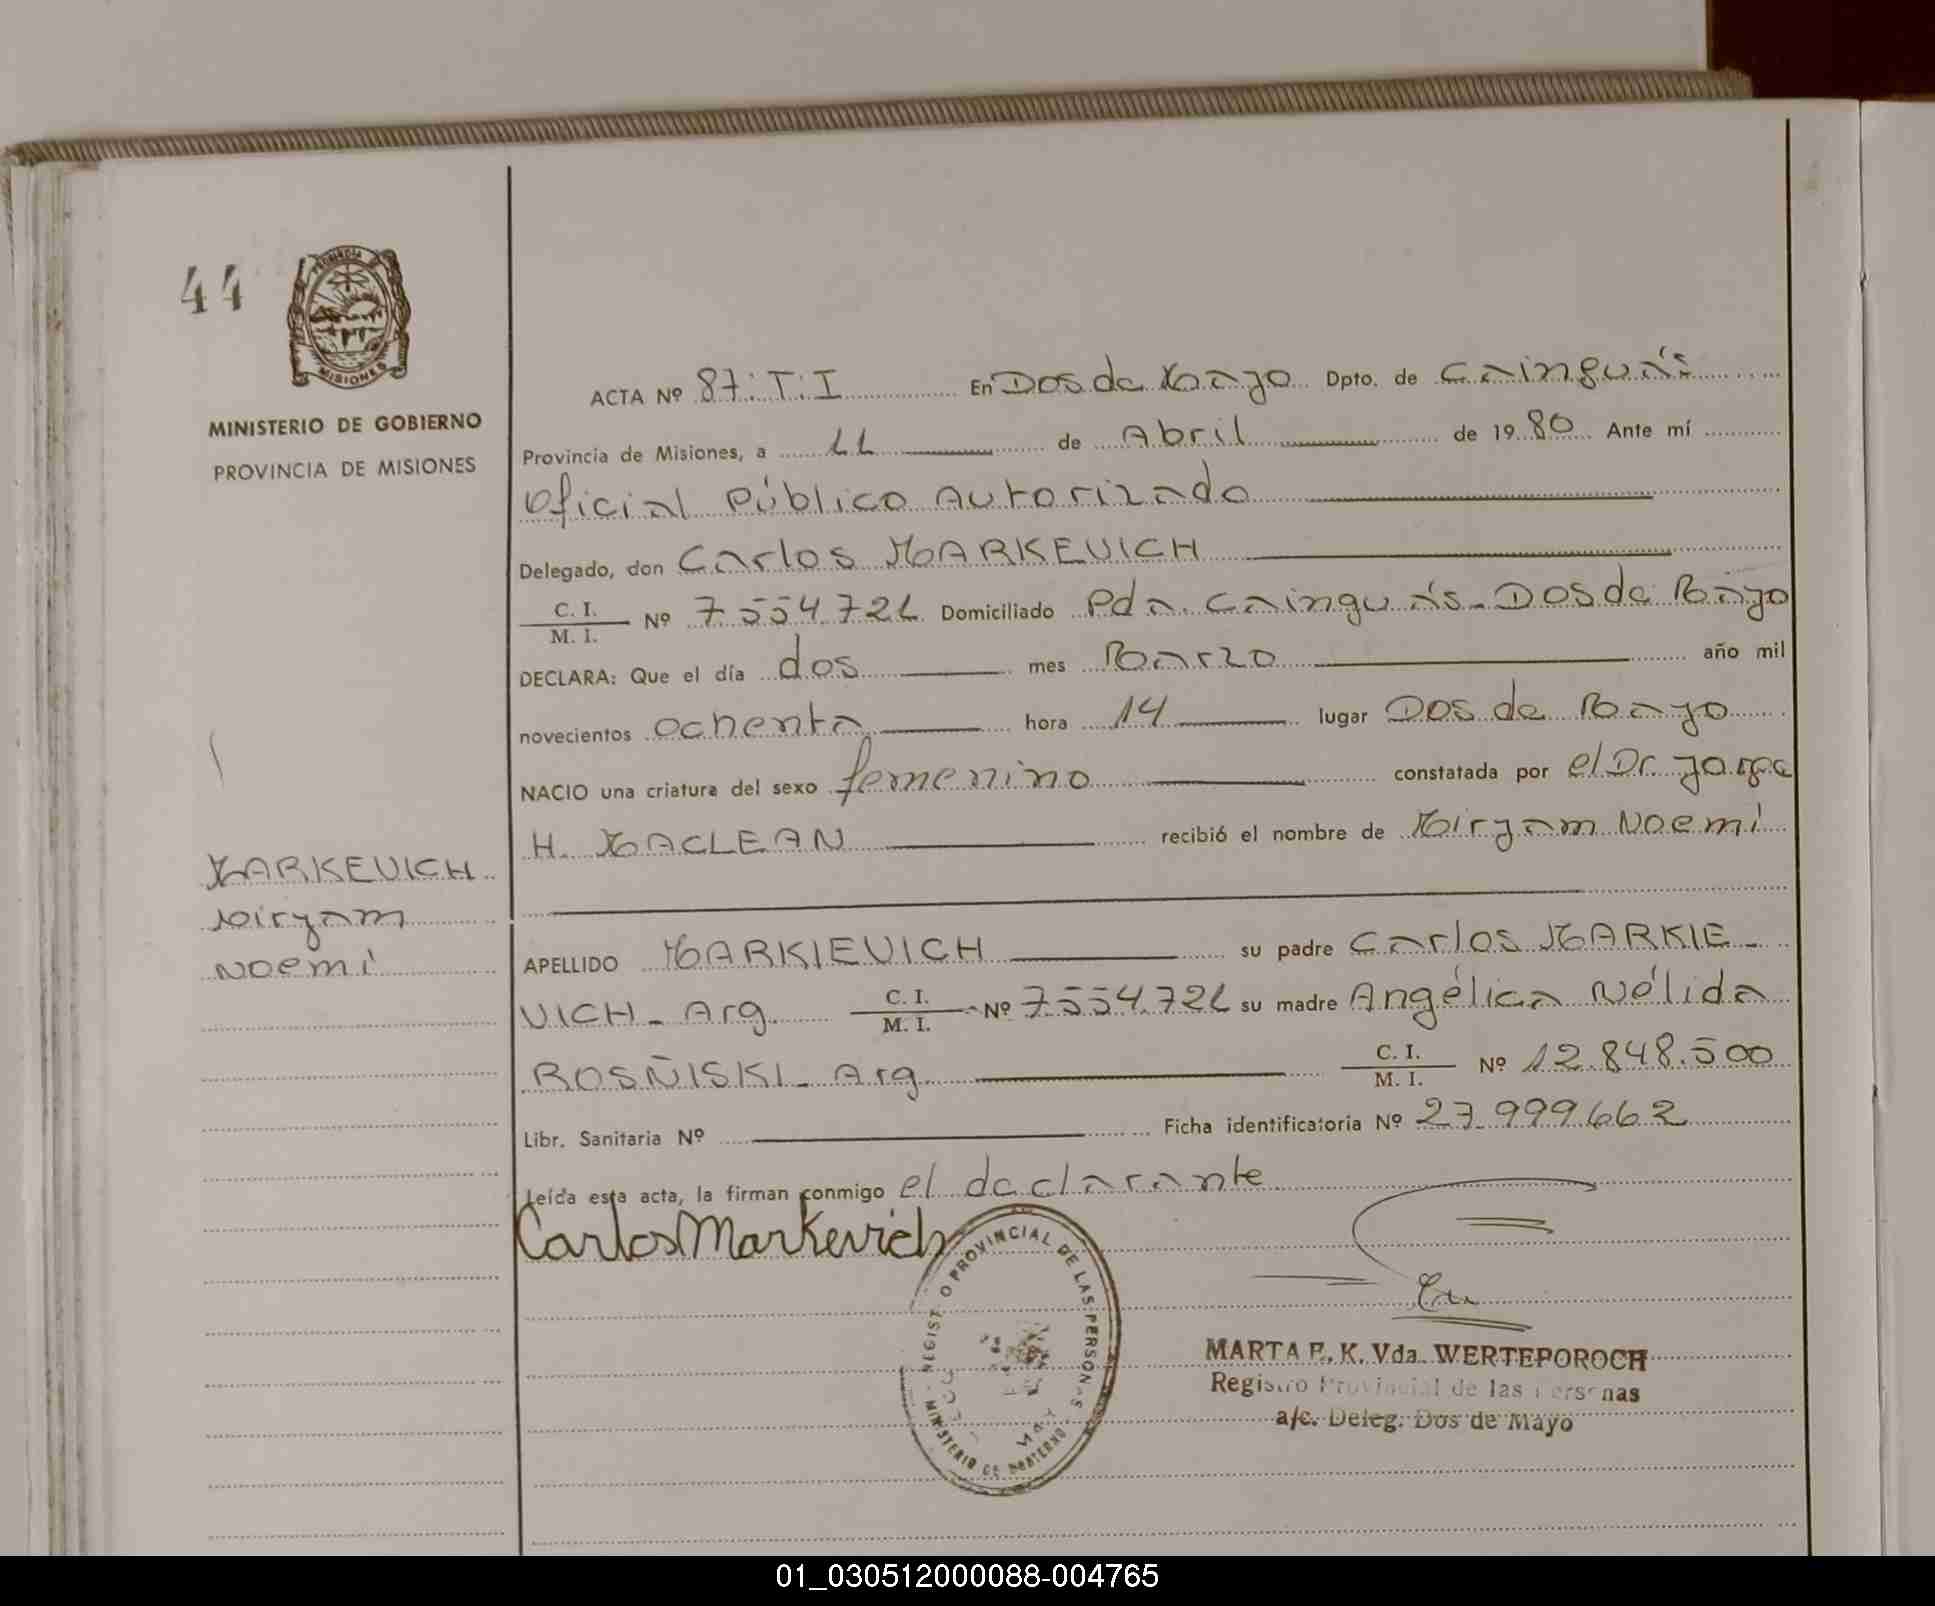 44
PROVINCIA
MISIONES
MINISTERIO DE GOBIERNO
PROVINCIA DE MISIONES
MARKEVICH
Miryam
Noemí
ACTA Nº 87: T: I En Dos de Mayo Dpto. de Cainguás
Provincia de Misiones, a 11 de Abril de 1980 Ante mí
Oficial Público Autorizado
Delegado, don Carlos MARKEVICH
C. I.
M. I. Nº 7.554.721 Domiciliado Pda. Cainguás - Dos de Mayo
DECLARA: Que el día dos mes Marzo año mil
novecientos ochenta hora 14 lugar Dos de Mayo
NACIO una criatura del sexo femenino constatada por el Dr. Jorge
H. MACLEAN recibió el nombre de Miryam Noemí
APELLIDO MARKIEVICH su padre Carlos MARKIE-
VICH - Arg. C. I.
M. I. Nº 7.554.721 su madre Angélica Nélida
ROSÑISKI - Arg. C. I.
M. I. Nº 12.848.500
Libr. Sanitaria Nº Ficha identificatoria Nº 27.999.662
Leída esta acta, la firman conmigo el declarante
Carlos Markevich
PROVINCIAL DE LAS PERSONAS
MINISTERIO DE
MARTA E. K. Vda. WERTEPOROCH
Registro Provincial de las Personas
a/c. Deleg. Dos de Mayo
01_030512000088-004765